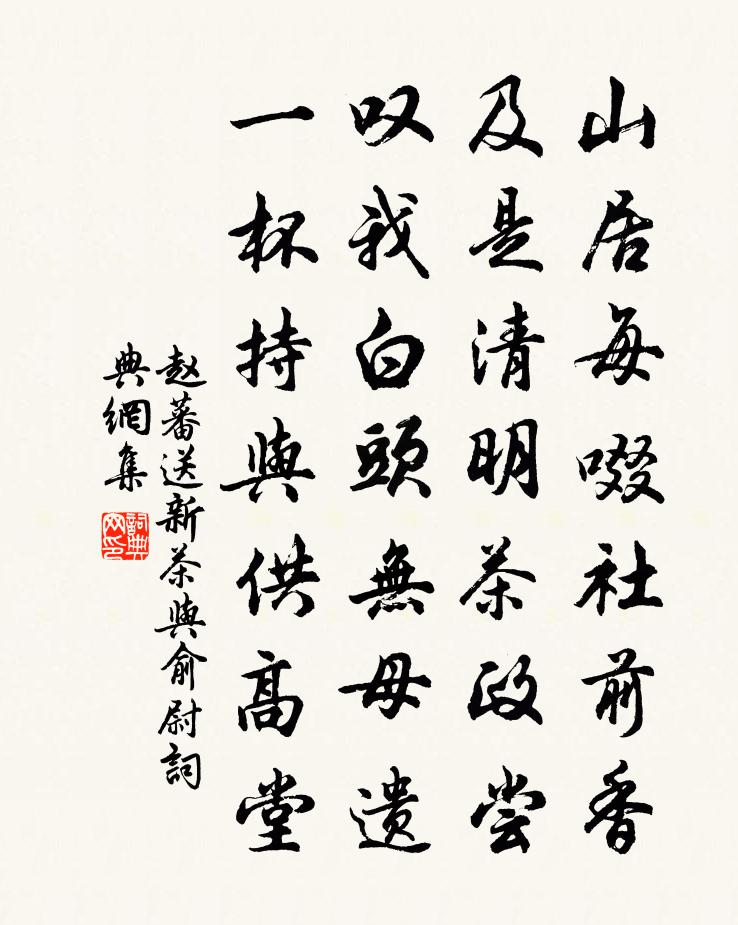 山居每啜社前香
及是清明茶政尝
叹我白頭無母遗
一杯持與供高堂
赵蕃送新茶與俞尉詞
典網集
詞典网印